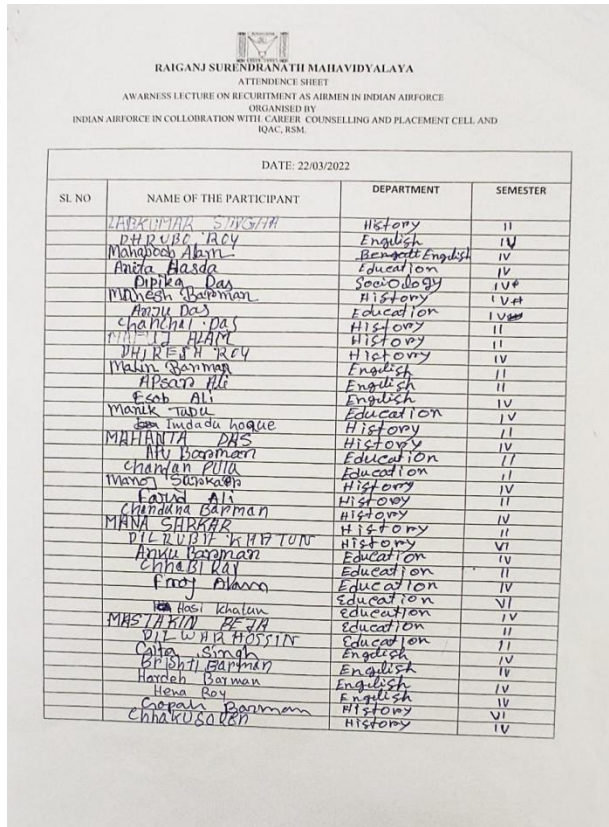 RAIGANJ SURENDRANATH MAHAVIDYALAYA
ATTENDENCE SHEET
AWARNESS LECTURE ON RECURITMENT AS AIRMEN IN INDIAN AIRFORCE
ORGANISED BY
INDIAN AIRFORCE IN COLLOBRATION WITH CAREER COUNSELLING AND PLACEMENT CELL AND
IQAC, RSM.
DATE: 22/03/2022
SL NO NAME OF THE PARTICIPANT DEPARTMENT SEMESTER
LABKUMAR SINGHA History II
DHRUBO ROY Engilish IV
Mahaboob Alam Engilish IV
Anita Hasda Education IV
Dipika Das Sociology IV
Mahesh Barman History IV
Anju Das Education IV
Chanchal Das History II
ALAM History II
DHIRESH ROY History IV
Malin Barman Engilish II
Apsar Ali Engilish II
Esob Ali Engilish IV
Manik Tudu Education IV
Imdadu hoque History II
MAHANTA DAS History IV
Barman Education II
Chandan Education II
Manoj Sarkar History IV
Farid Ali History II
Chandana Barman History IV
MANA SARKAR History II
DILRUBIF KHATUN History VI
Anku Barman Education IV
Chhabi Ray Education II
Alam Education IV
Hasi Khatun Education VI
MASTAKIN REJA Education IV
DILWAR HOSSIN Education II
Gita Singh Engilish II
Brishti Barman Engilish IV
Hardeb Barman Engilish IV
Hena Roy Engilish IV
Gopal Barman History VI
History IV